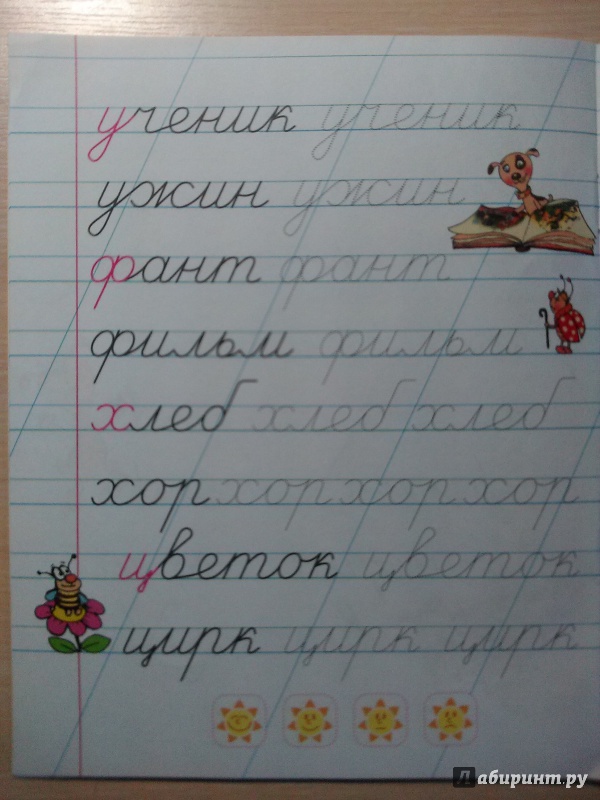 ученик ученик
ужин ужин
фант фант
фильм фильм
хлеб хлеб хлеб
хор хор хор хор
цветок цветок
цирк цирк цирк
Лабиринт.ру